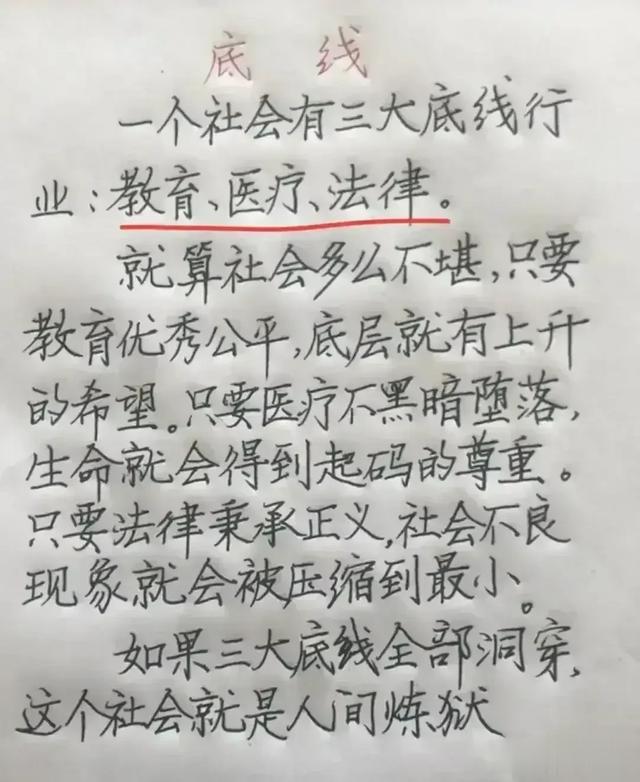 底线
一个社会有三大底线行
业:教育、医疗、法律。
就算社会多么不堪,只要
教育优秀公平,底层就有上升
的希望。只要医疗不黑暗堕落,
生命就会得到起码的尊重。
只要法律秉承正义,社会不良
现象就会被压缩到最小。
如果三大底线全部洞穿,
这个社会就是人间炼狱